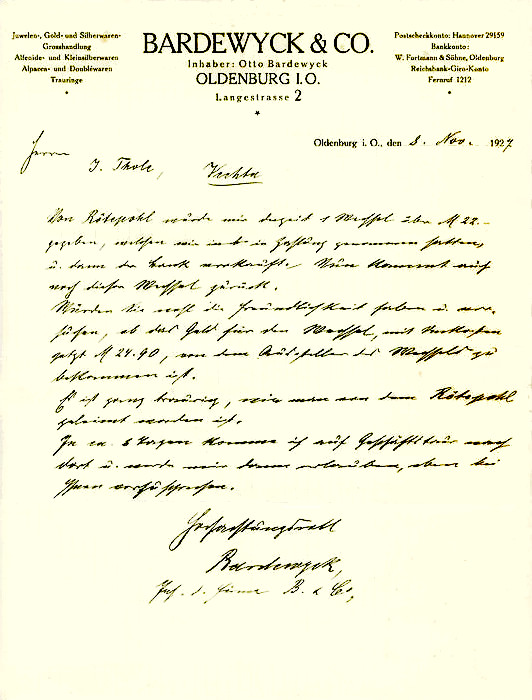 Juwelen-, Gold- und Silberwaren-
Grosshandlung
Alfenide- und Kleinsilberwaren
Alpacca- und Doubléwaren
Trauringe
BARDEWYCK & CO.
Inhaber: Otto Bardewyck
OLDENBURG I. O.
Langestrasse 2
Postscheckkonto: Hannover 29159
Bankkonto:
W. Fortmann & Söhne, Oldenburg
Reichsbank-Giro-Konto
Fernruf 1212
Oldenburg i. O., den 8. Nov. 1927
Herrn
J. Thole,
Vechta
Von Rötepohl wurde mir derzeit 1 Wechsel über M 22.-
gegeben, welchen wir in Zahlung genommen hatten,
u. dann der Bank verkauft. Nun kommt auch
noch dieser Wechsel zurück.
Würden Sie wohl die Freundlichkeit haben u. ver-
suchen, ob das Geld für den Wechsel, mit Unkosten
jetzt M 24.90, von dem Aussteller des Wechsels zu
bekommen ist.
Es ist ganz traurig, wie man von dem Rötepohl
geleimt worden ist.
In ca. 6 Tagen komme ich auf Geschäftstour nach
dort u. werde mir dann erlauben, eben bei
Ihnen vorzusprechen.
Hochachtungsvoll
Bardewyck,
Inh. d. Firma B. & Co.,